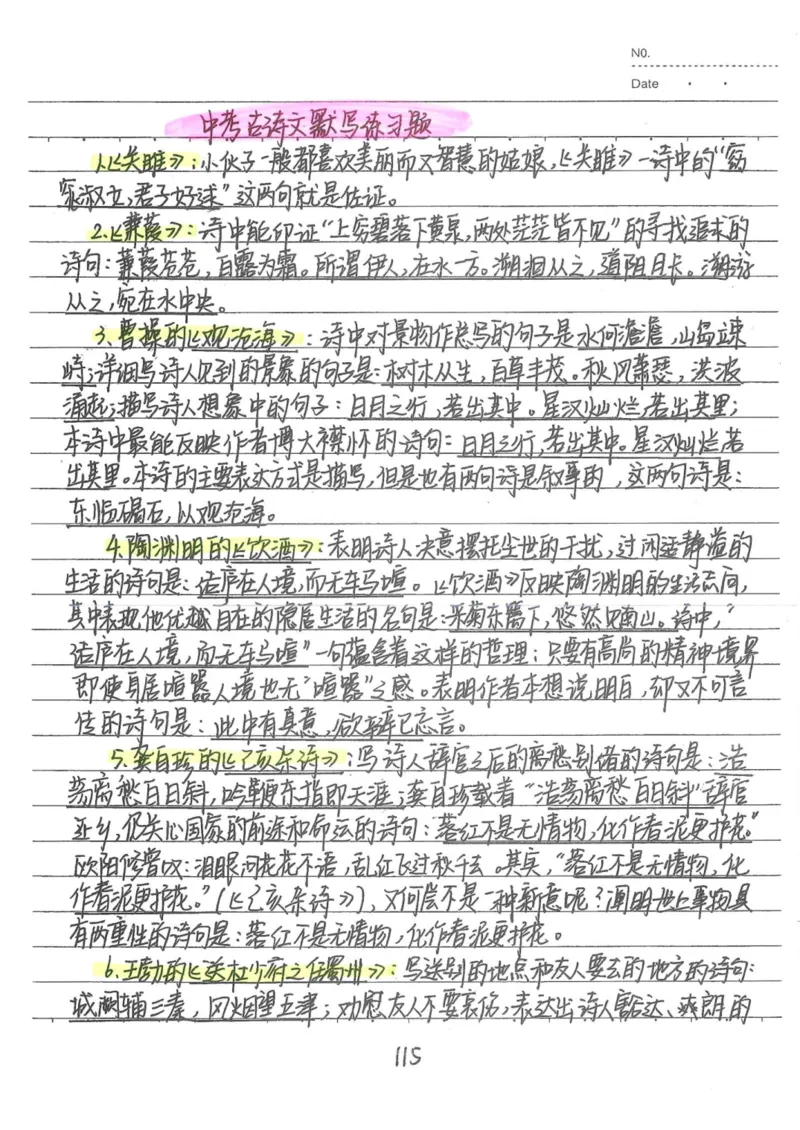 N0.
Date
中考古诗文默写练习题
1.《关雎》：小伙子一般都喜欢美丽而又智慧的姑娘，《关雎》一诗中的“窈
窕淑女，君子好逑”这两句就是佐证。
2.《蒹葭》：诗中能印证“上穷碧落下黄泉，两处茫茫皆不见”的寻找追求的
诗句：蒹葭苍苍，白露为霜。所谓伊人，在水一方。溯洄从之，道阻且长。溯游
从之，宛在水中央。
3.曹操的《观沧海》：诗中对景物作总写的句子是水何澹澹，山岛竦
峙；详细写诗人见到的景象的句子是：树木从生，百草丰茂。秋风萧瑟，洪波
涌起；描写诗人想象中的句子：日月之行，若出其中。星汉灿烂，若出其里；
本诗中最能反映作者博大襟怀的诗句：日月之行，若出其中。星汉灿烂若
出其里。本诗的主要表达方式是描写，但是也有两句诗是叙事的，这两句诗是：
东临碣石，以观沧海。
4.陶渊明的《饮酒》：表明诗人决意摆托尘世的干扰，过闲适静谧的
生活的诗句是：结庐在人境，而无车马喧。《饮酒》反映陶渊明的生活志向，
其中表现他优越自在的隐居生活的名句是：采菊东篱下，悠然见南山。诗中，“
结庐在人境，而无车马喧”一句蕴含着这样的哲理：只要有高尚的精神境界
即使身居喧嚣人境也无“喧嚣”之感。表明作者本想说明白，却又不可言
传的诗句是：此中有真意，欲辩已忘言。
5.龚自珍的《己亥杂诗》：写诗人辞官之后的离愁别绪的诗句是：浩
荡离愁白日斜，吟鞭东指即天涯；龚自珍载着“浩荡离愁白日斜”辞官
还乡，仍关心国家的前途和命运的诗句：落红不是无情物，化作春泥更护花。”
欧阳修曾叹：泪眼问花花不语，乱红飞过秋千去。其实，“落红不是无情物，化
作春泥更护花。”（《己亥杂诗》），又何尝不是一种新意呢？阐明世上事物具
有两重性的诗句是：落红不是无情物，化作春泥更护花。
6.王勃的《送杜少府之任蜀州》：写送别的地点和友人要去的地方的诗句：
城阙辅三秦，风烟望五津；劝慰友人不要哀伤，表达出诗人豁达、爽朗的
115